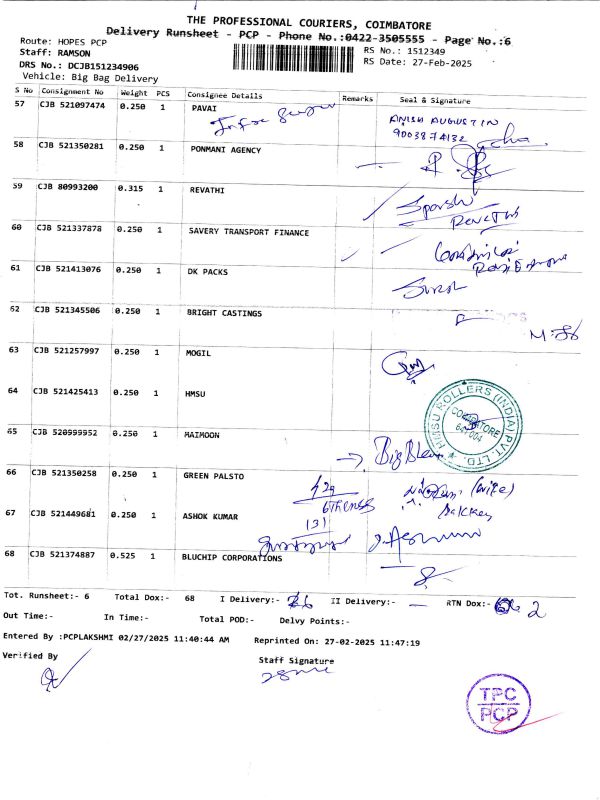 THE PROFESSIONAL COURIERS, COIMBATORE
Delivery Runsheet - PCP - Phone No.:0422-3505555 - Page No.:6
Route: HOPES PCP
Staff: RAMSON
RS No.: 1512349
DRS No.: DCJB151234906
RS Date: 27-Feb-2025
Vehicle: Big Bag Delivery
S No Consignment No Weight PCS Consignee Details Remarks Seal & Signature
57 CJB 521097474 0.250 1 PAVAI
ANISH AUGUSTIN
9003874132
58 CJB 521350281 0.250 1 PONMANI AGENCY
59 CJB 80993200 0.315 1 REVATHI
Revathi
60 CJB 521337878 0.250 1 SAVERY TRANSPORT FINANCE
61 CJB 521413076 0.250 1 DK PACKS
62 CJB 521345506 0.250 1 BRIGHT CASTINGS
63 CJB 521257997 0.250 1 MOGIL
64 CJB 521425413 0.250 1 HMSU
HMSU ROLLERS (INDIA) PVT. LTD.
COIMBATORE
641 004
65 CJB 520999952 0.250 1 MAIMOON
66 CJB 521350258 0.250 1 GREEN PALSTO
(wife)
67 CJB 521449681 0.250 1 ASHOK KUMAR
131
68 CJB 521374887 0.525 1 BLUCHIP CORPORATIONS
Tot. Runsheet:- 6 Total Dox:- 68 I Delivery:- II Delivery:- — RTN Dox:- 2
Out Time:- In Time:- Total POD:- Delvy Points:-
Entered By :PCPLAKSHMI 02/27/2025 11:40:44 AM Reprinted On: 27-02-2025 11:47:19
Verified By
Staff Signature
TPC
PCP